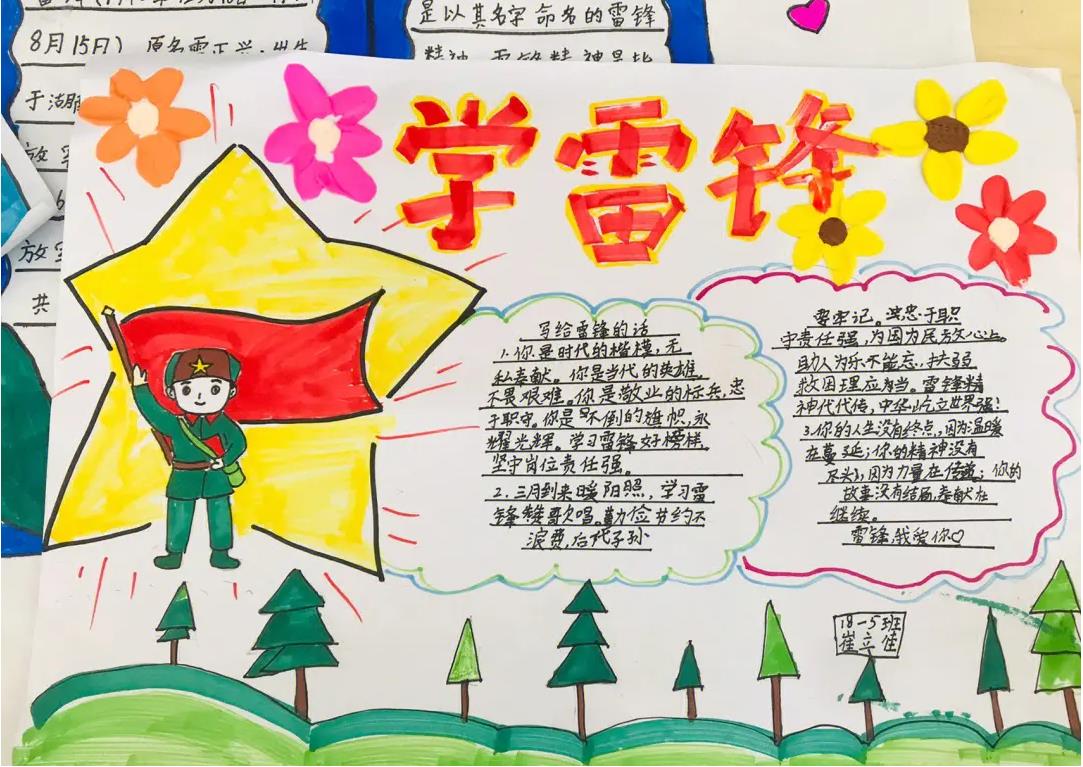 8月15日)，原名雷正兴，出生
是以其名字命名的雷锋
学雷锋
写给雷锋的话
1.你是时代的楷模，无
私奉献。你是当代的英雄，
不畏艰难。你是敬业的标兵，忠
于职守。你是不倒的旗帜，永
耀光辉。学习雷锋好榜样
坚守岗位责任强。
2.三月到来暖阳照，学习雷
锋赞歌唱。勤俭节约不
浪费，后代子孙
要牢记。忠于职
守责任强，为国为民放心上。
助人为乐不能忘，扶弱
救困理应当。雷锋精
神代代传，中华屹立世界强！
3.你的人生没有终点，因为温暖
在蔓延；你的精神没有
尽头，因为力量在传递；你的
故事没有结局，奉献在
继续。
雷锋，我爱你♡
18-5班
崔立佳